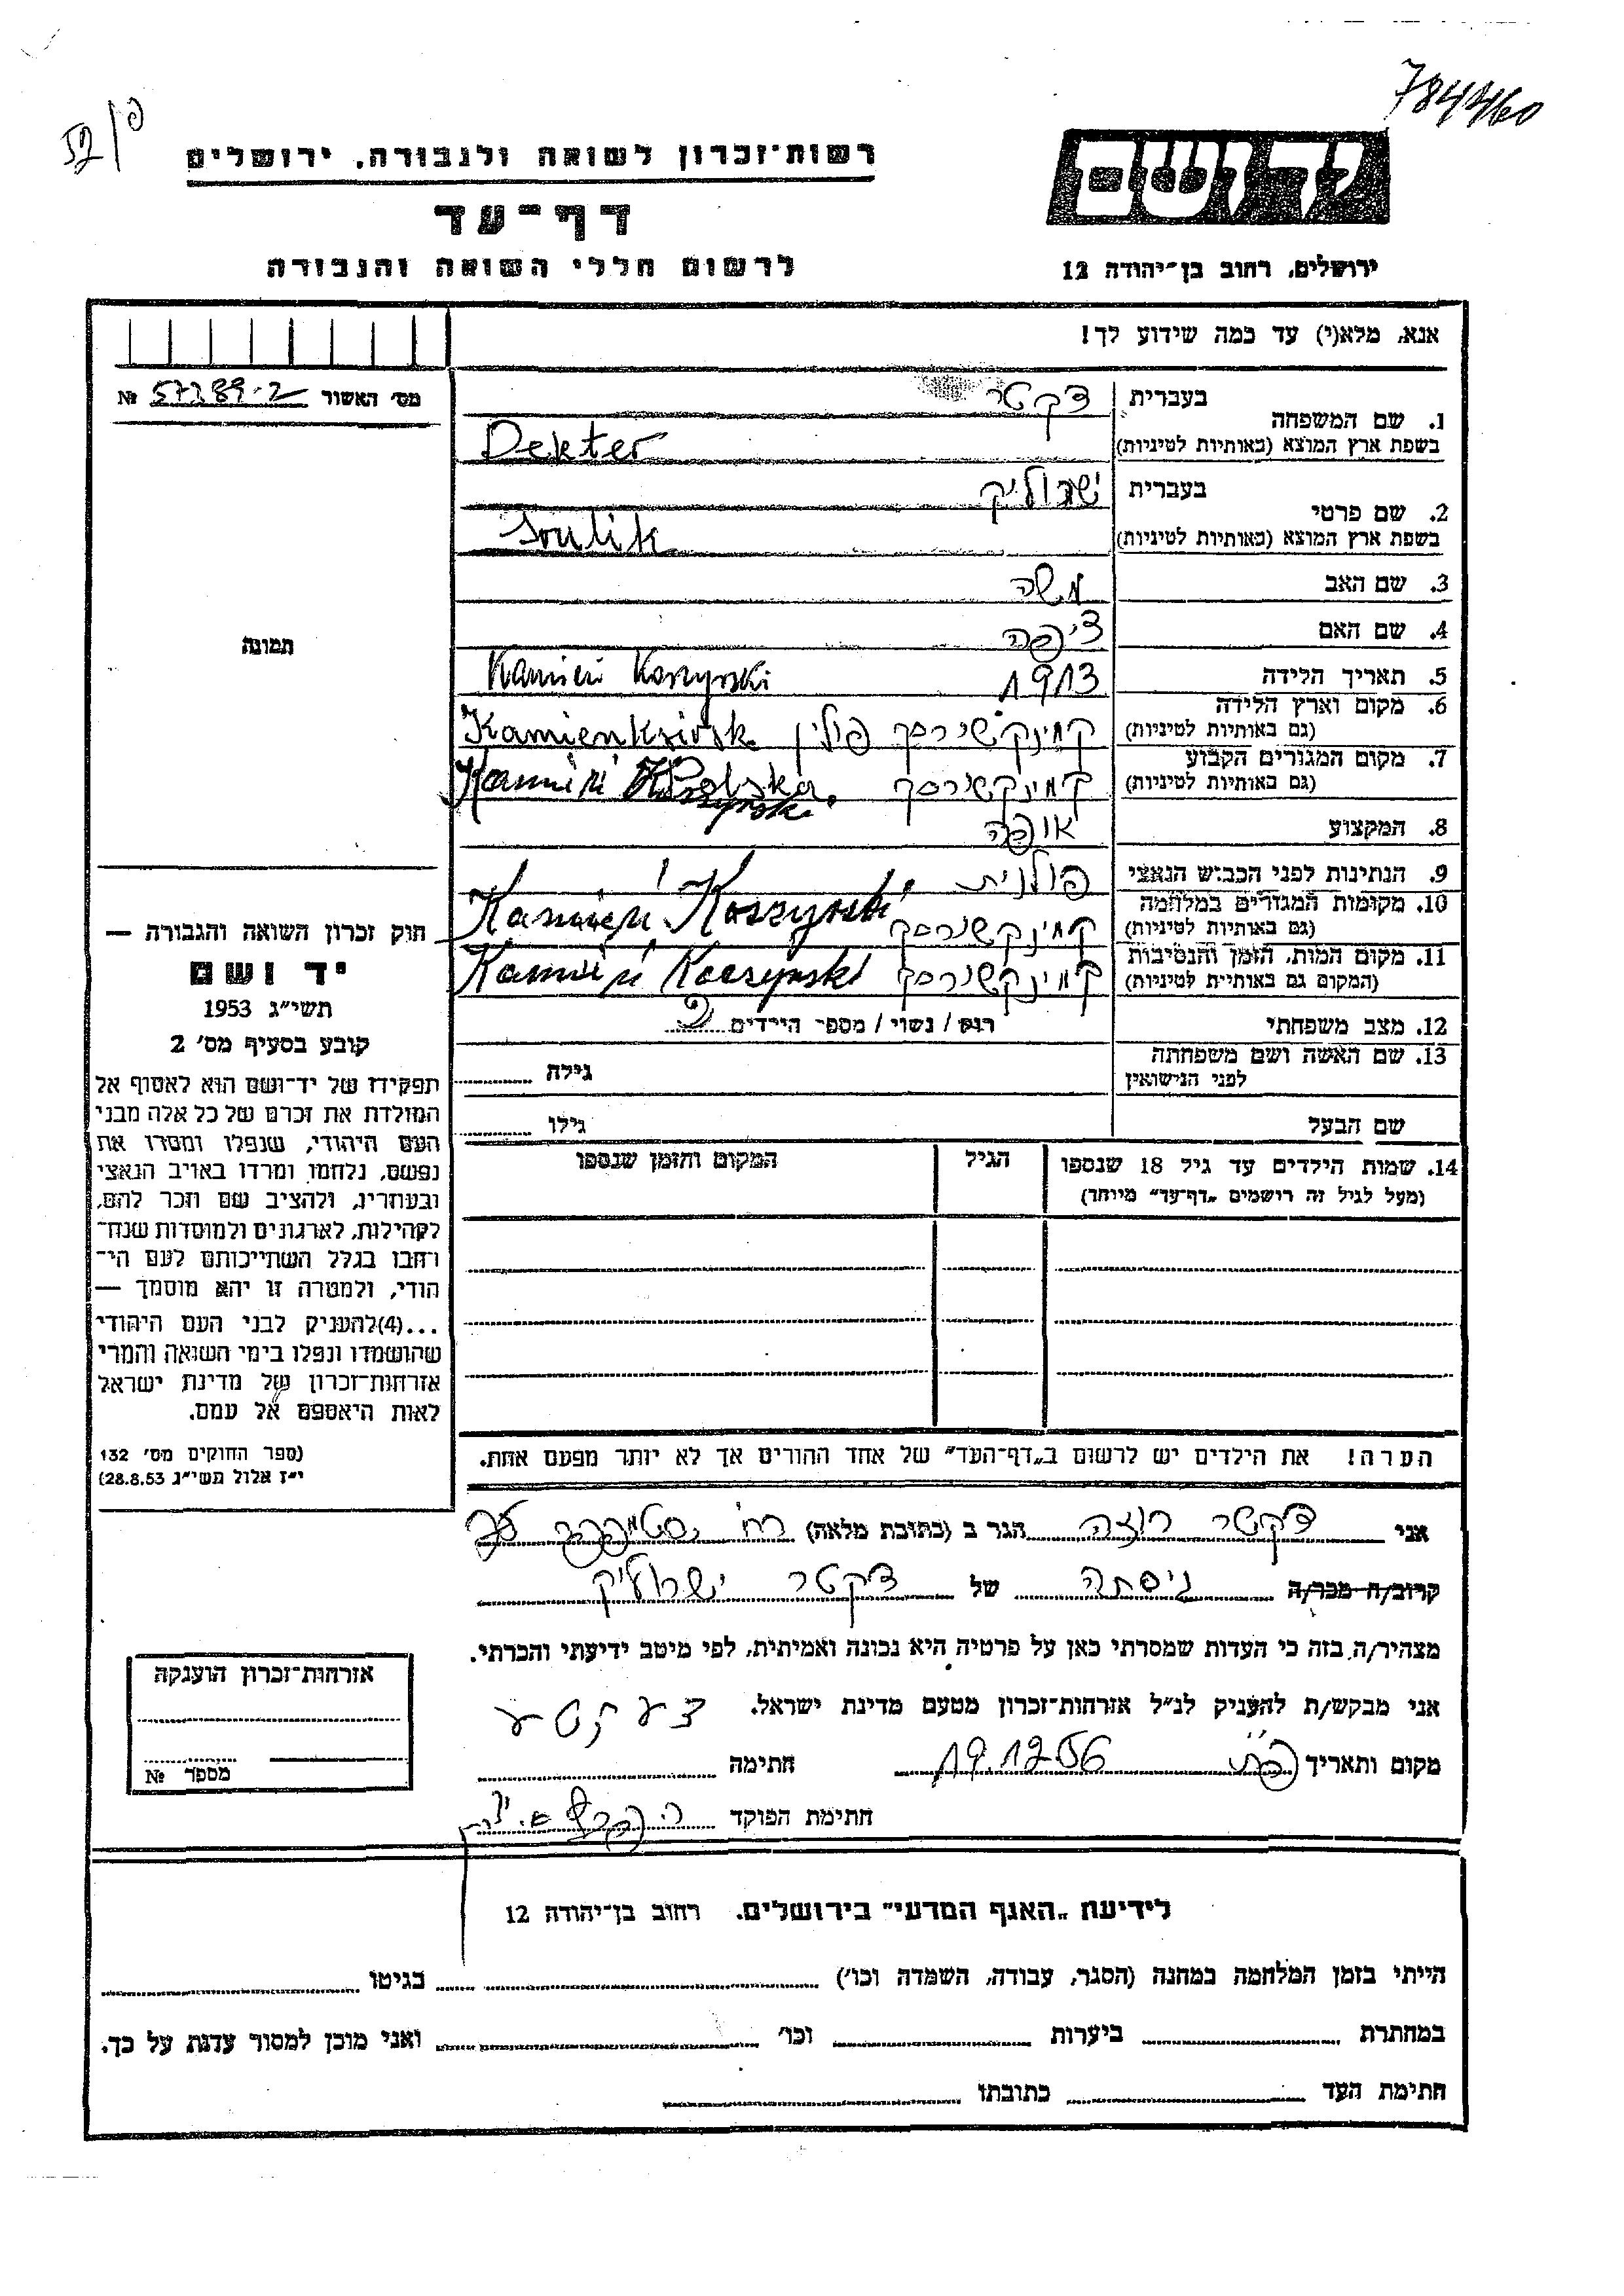 784460
52/פ
רשות־זכרון לשואה ולגבורה, ירושלים
יד ושם
דף־עד
לרשום חללי השואה והגבורה
ירושלים, רחוב בן־יהודה 12
אנא, מלא(י) עד כמה שידוע לך!
מס׳ האשור 57389-2 №
1. שם המשפחה
בעברית דקטר
בשפת ארץ המוצא (באותיות לטיניות) Dekter
2. שם פרטי
בעברית ישרוליק
בשפת ארץ המוצא (באותיות לטיניות) Srulik
3. שם האב משה
4. שם האם ציפה
תמונה
5. תאריך הלידה 1913 Kamień Koszyrski
6. מקום וארץ הלידה
(גם באותיות לטיניות) קמינקשירסק פולין
7. מקום המגורים הקבוע
(גם באותיות לטיניות) קמינקשירסק Kamień Polska Koszyrski
8. המקצוע אופה
9. הנתינות לפני הכבוש הנאצי פולנית
10. מקומות המגורים במלחמה
(גם באותיות לטיניות) קמינקשירסק Kamień Koszyrski
11. מקום המות, הזמן והנסיבות
(המקום גם באותיות לטיניות) קמינקשירסק Kamień Koszyrski
12. מצב משפחתי רוק / נשוי / מספר הילדים
13. שם האשה ושם משפחתה
לפני הנישואין גילה
שם הבעל גילו
14. שמות הילדים עד גיל 18 שנספו הגיל המקום והזמן שנספו
(מעל לגיל זה רושמים „דף־עד״ מיוחד)
הערה! את הילדים יש לרשום ב„דף־העד״ של אחד ההורים אך לא יותר מפעם אחת.
חוק זכרון השואה והגבורה —
יד ושם
תשי״ג 1953
קובע בסעיף מס׳ 2
תפקידו של יד־ושם הוא לאסוף אל
המולדת את זכרם של כל אלה מבני
העם היהודי, שנפלו ומסרו את
נפשם, נלחמו ומרדו באויב הנאצי
ובעוזריו, ולהציב שם וזכר להם,
לקהילות, לארגונים ולמוסדות שנח־
רבו בגלל השתייכותם לעם הי־
הודי, ולמטרה זו יהא מוסמך —
...(4)להעניק לבני העם היהודי
שהושמדו ונפלו בימי השואה והמרי
אזרחות־זכרון של מדינת ישראל
לאות היאספם אל עמם.
(ספר החוקים מס׳ 132
י״ז אלול תשי״ג 28.8.53)
אני דקטר רוזה הגר ב (כתובת מלאה) רח׳
קרוב/ה מכר/ה גיסתה של דקטר ישרוליק
מצהיר/ה בזה כי העדות שמסרתי כאן על פרטיה היא נכונה ואמיתית, לפי מיטב ידיעתי והכרתי.
אני מבקש/ת להעניק לנ״ל אזרחות־זכרון מטעם מדינת ישראל.
מקום ותאריך 19.12.56 חתימה
חתימת הפוקד
אזרחות־זכרון הוענקה
מספר №
לידיעת „האגף המדעי״ בירושלים, רחוב בן־יהודה 12
הייתי בזמן המלחמה במחנה (הסגר, עבודה, השמדה וכו׳) בגיטו
במחתרת ביערות וכו׳ ואני מוכן למסור עדות על כך.
חתימת העד כתובתו